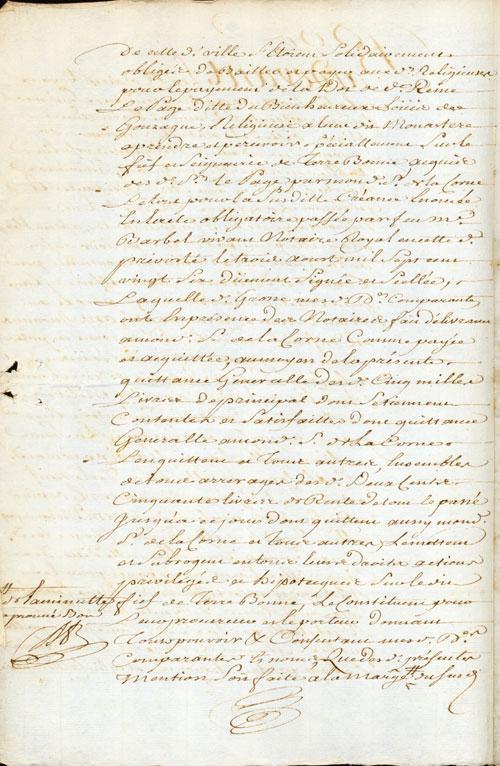 De cette d. ville s'étoient Solidairement
obligés de Bailler et payer aux d. Religieuses
pour le payement de la Dot de d.e Reine
Le Page ditte du Bienheureux Loüis de
Gonzague, Religieuse audit Monastere
a prendre et percevoir specialement Sur le
fief et Seigneurie de Terrebonne acquise
des d. Sr. le Page par mond. Sr. de la Corne
Le tout pour la Susditte Creance Enoncée
En lacte obligatoire passée par feu me.
Barbel vivant Notaire Royal en cette d.
prevosté le trois aoust mil Sept cent
vingt Six düement Signée et Scellée,
Laquelle d. Grosse mesd. De. Comparantes
ont En presence des Notaires fait délivrance
a mond. S. de la Corne Comme payée
et acquittée, au moyen de la présente
quittance Generalle des d. Cinq mille
Livres de principal dont Se tiennent
Contentes et Satisfaittes dont quittance
Generalle a mond. S. de La Corne
Len quittent et Tous autres Ensembles
de tous arrerages des d. Deux Cents
Cinquante livres de Rente de tout le passé
Jusqu'à ce jour dont quittent aussy mond.
Sr. de la Corne et Tous autres, Le mettent
et Subrogent en tous leurs droits actions
privileges et hipoteques Sur le dit
fief de Terre Bonne, Le Constituent pour
procureur et porteur donnant
Tous pouvoir & Consentant mesd. Des.
Comparantes Es noms Que des d. présentes
Mention Soit faite a la marge
de la minutte